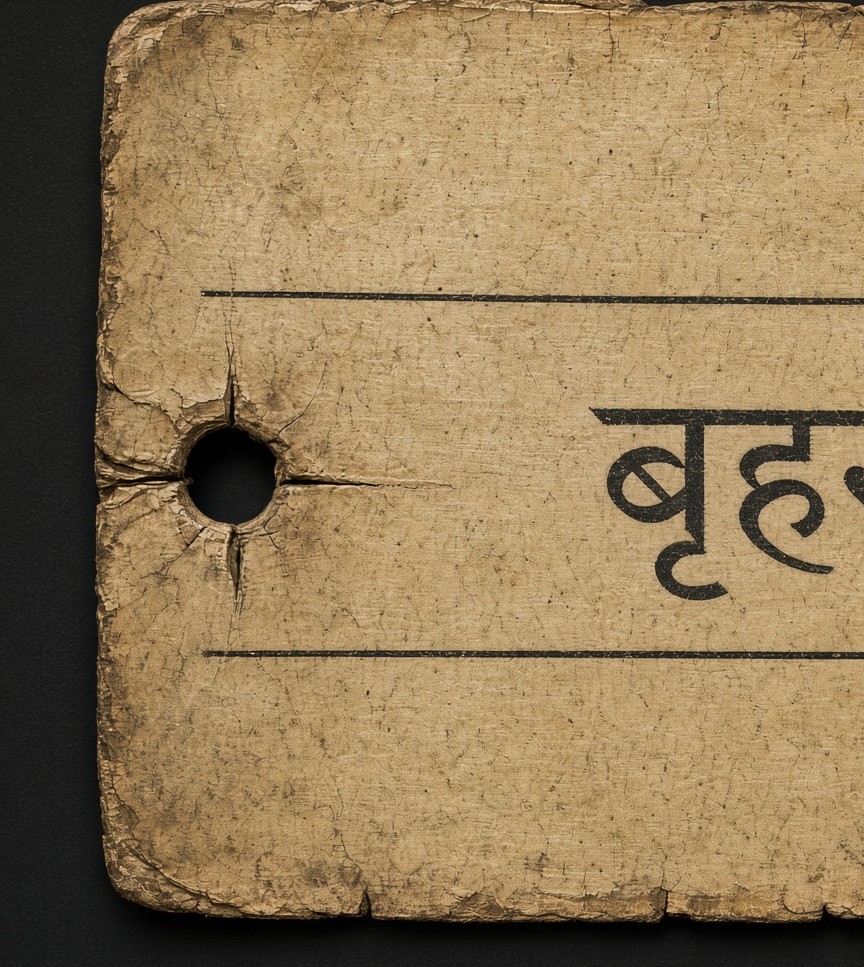 बृह